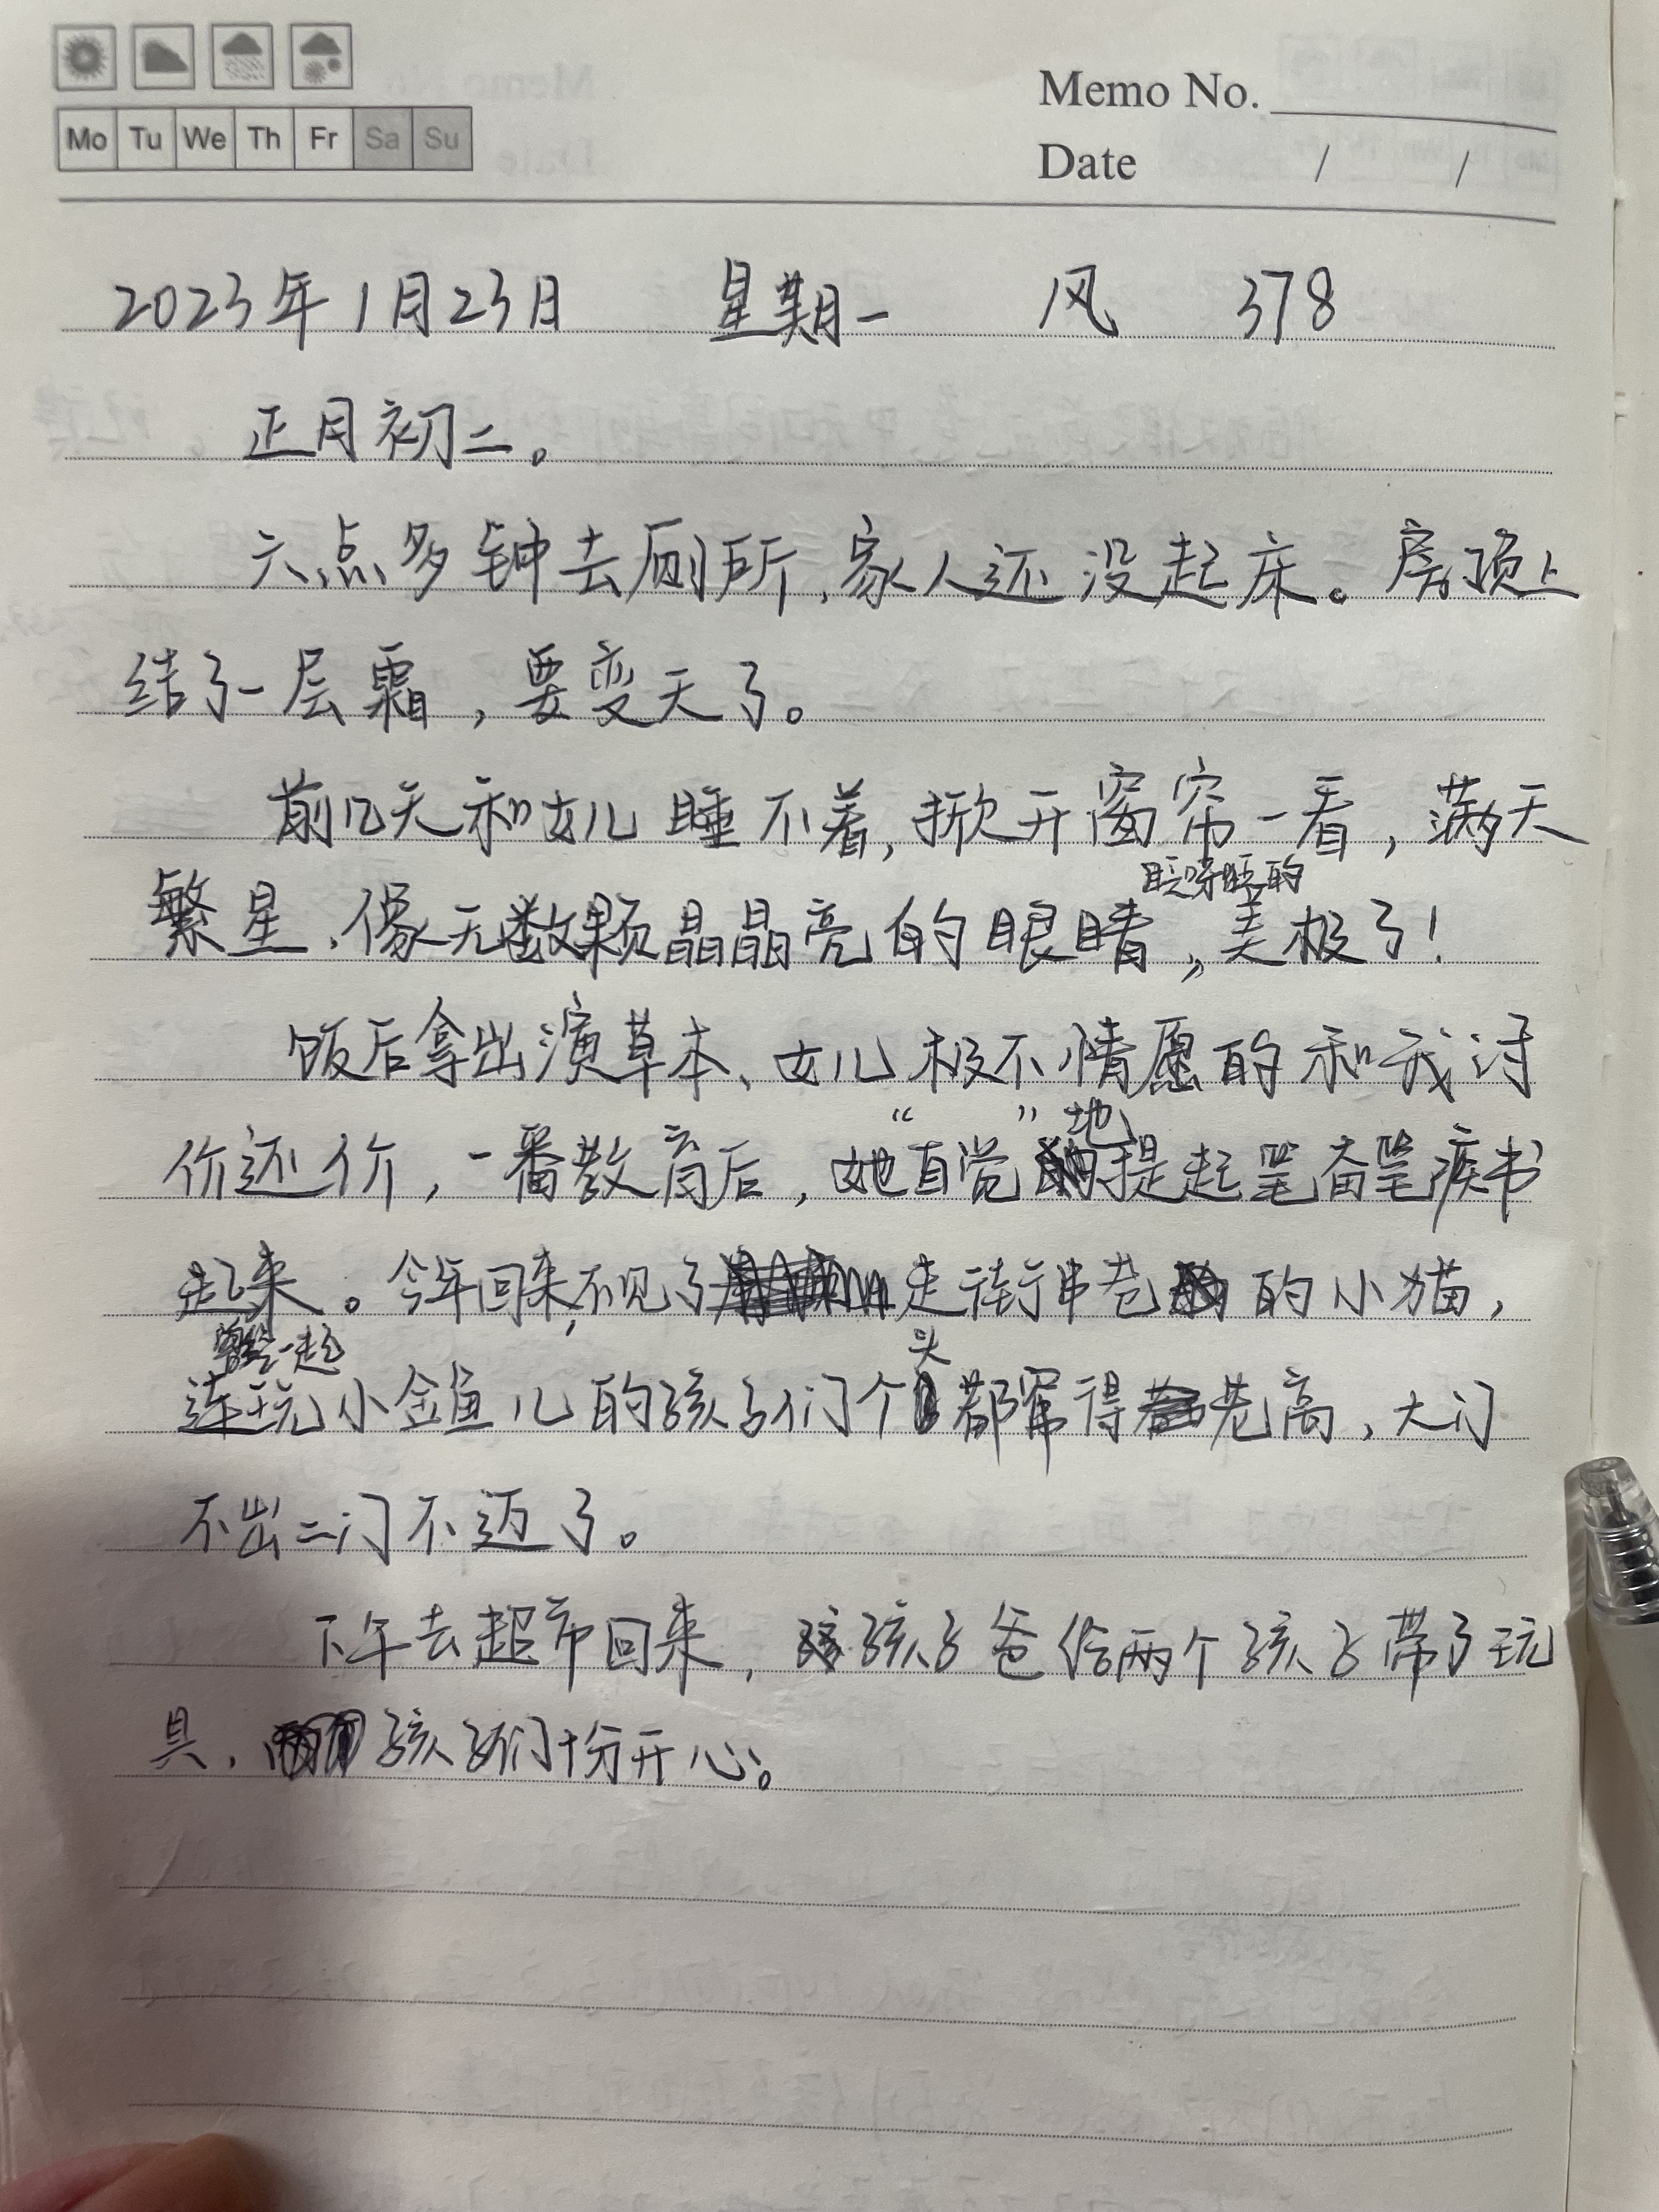 Mo Tu We Th Fr Sa Su
Memo No.
Date / /
2023年1月23日 星期一 风 378
正月初二。
六点多钟去厕所,家人还没起床。房顶上
结了一层霜,要变天了。
前几天和女儿睡不着,掀开窗帘一看,满天
眨呀眨的
繁星,像无数颗晶晶亮的眼睛,美极了!
饭后拿出演草本、女儿极不情愿的和我讨
“ ” 地
价还价,一番教育后,她自觉提起笔奋笔疾书
起来。今年回来,不见了走街串巷的小猫,
曾经一起
连玩小金鱼儿的孩子们个都窜得老高,大门
头
不出二门不迈了。
下午去超市回来,孩子爸给两个孩子带了玩
具,孩子们十分开心。